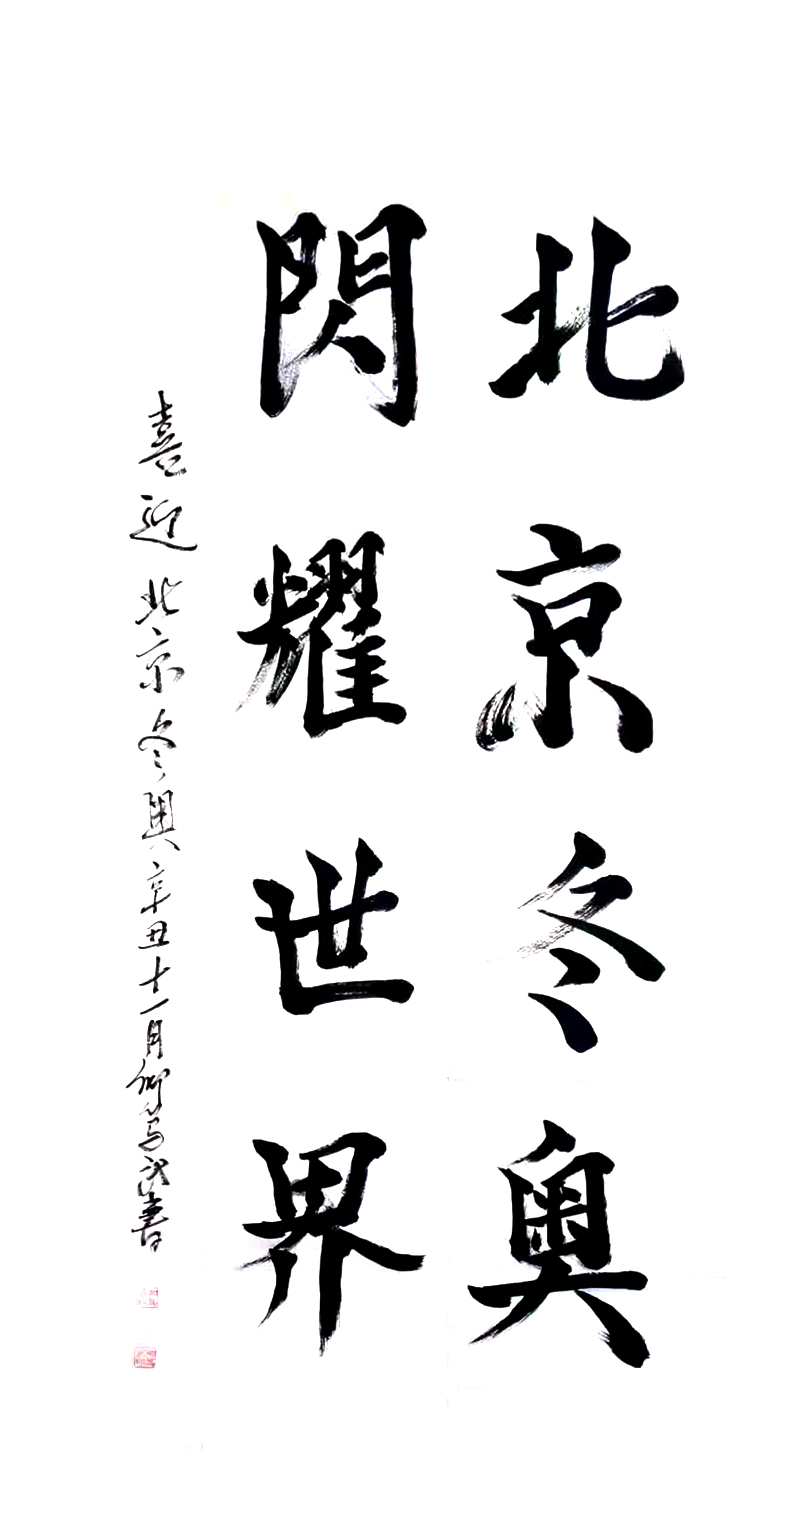 北京冬奧
閃耀世界
喜迎北京冬奧辛丑十一月卿篤武書